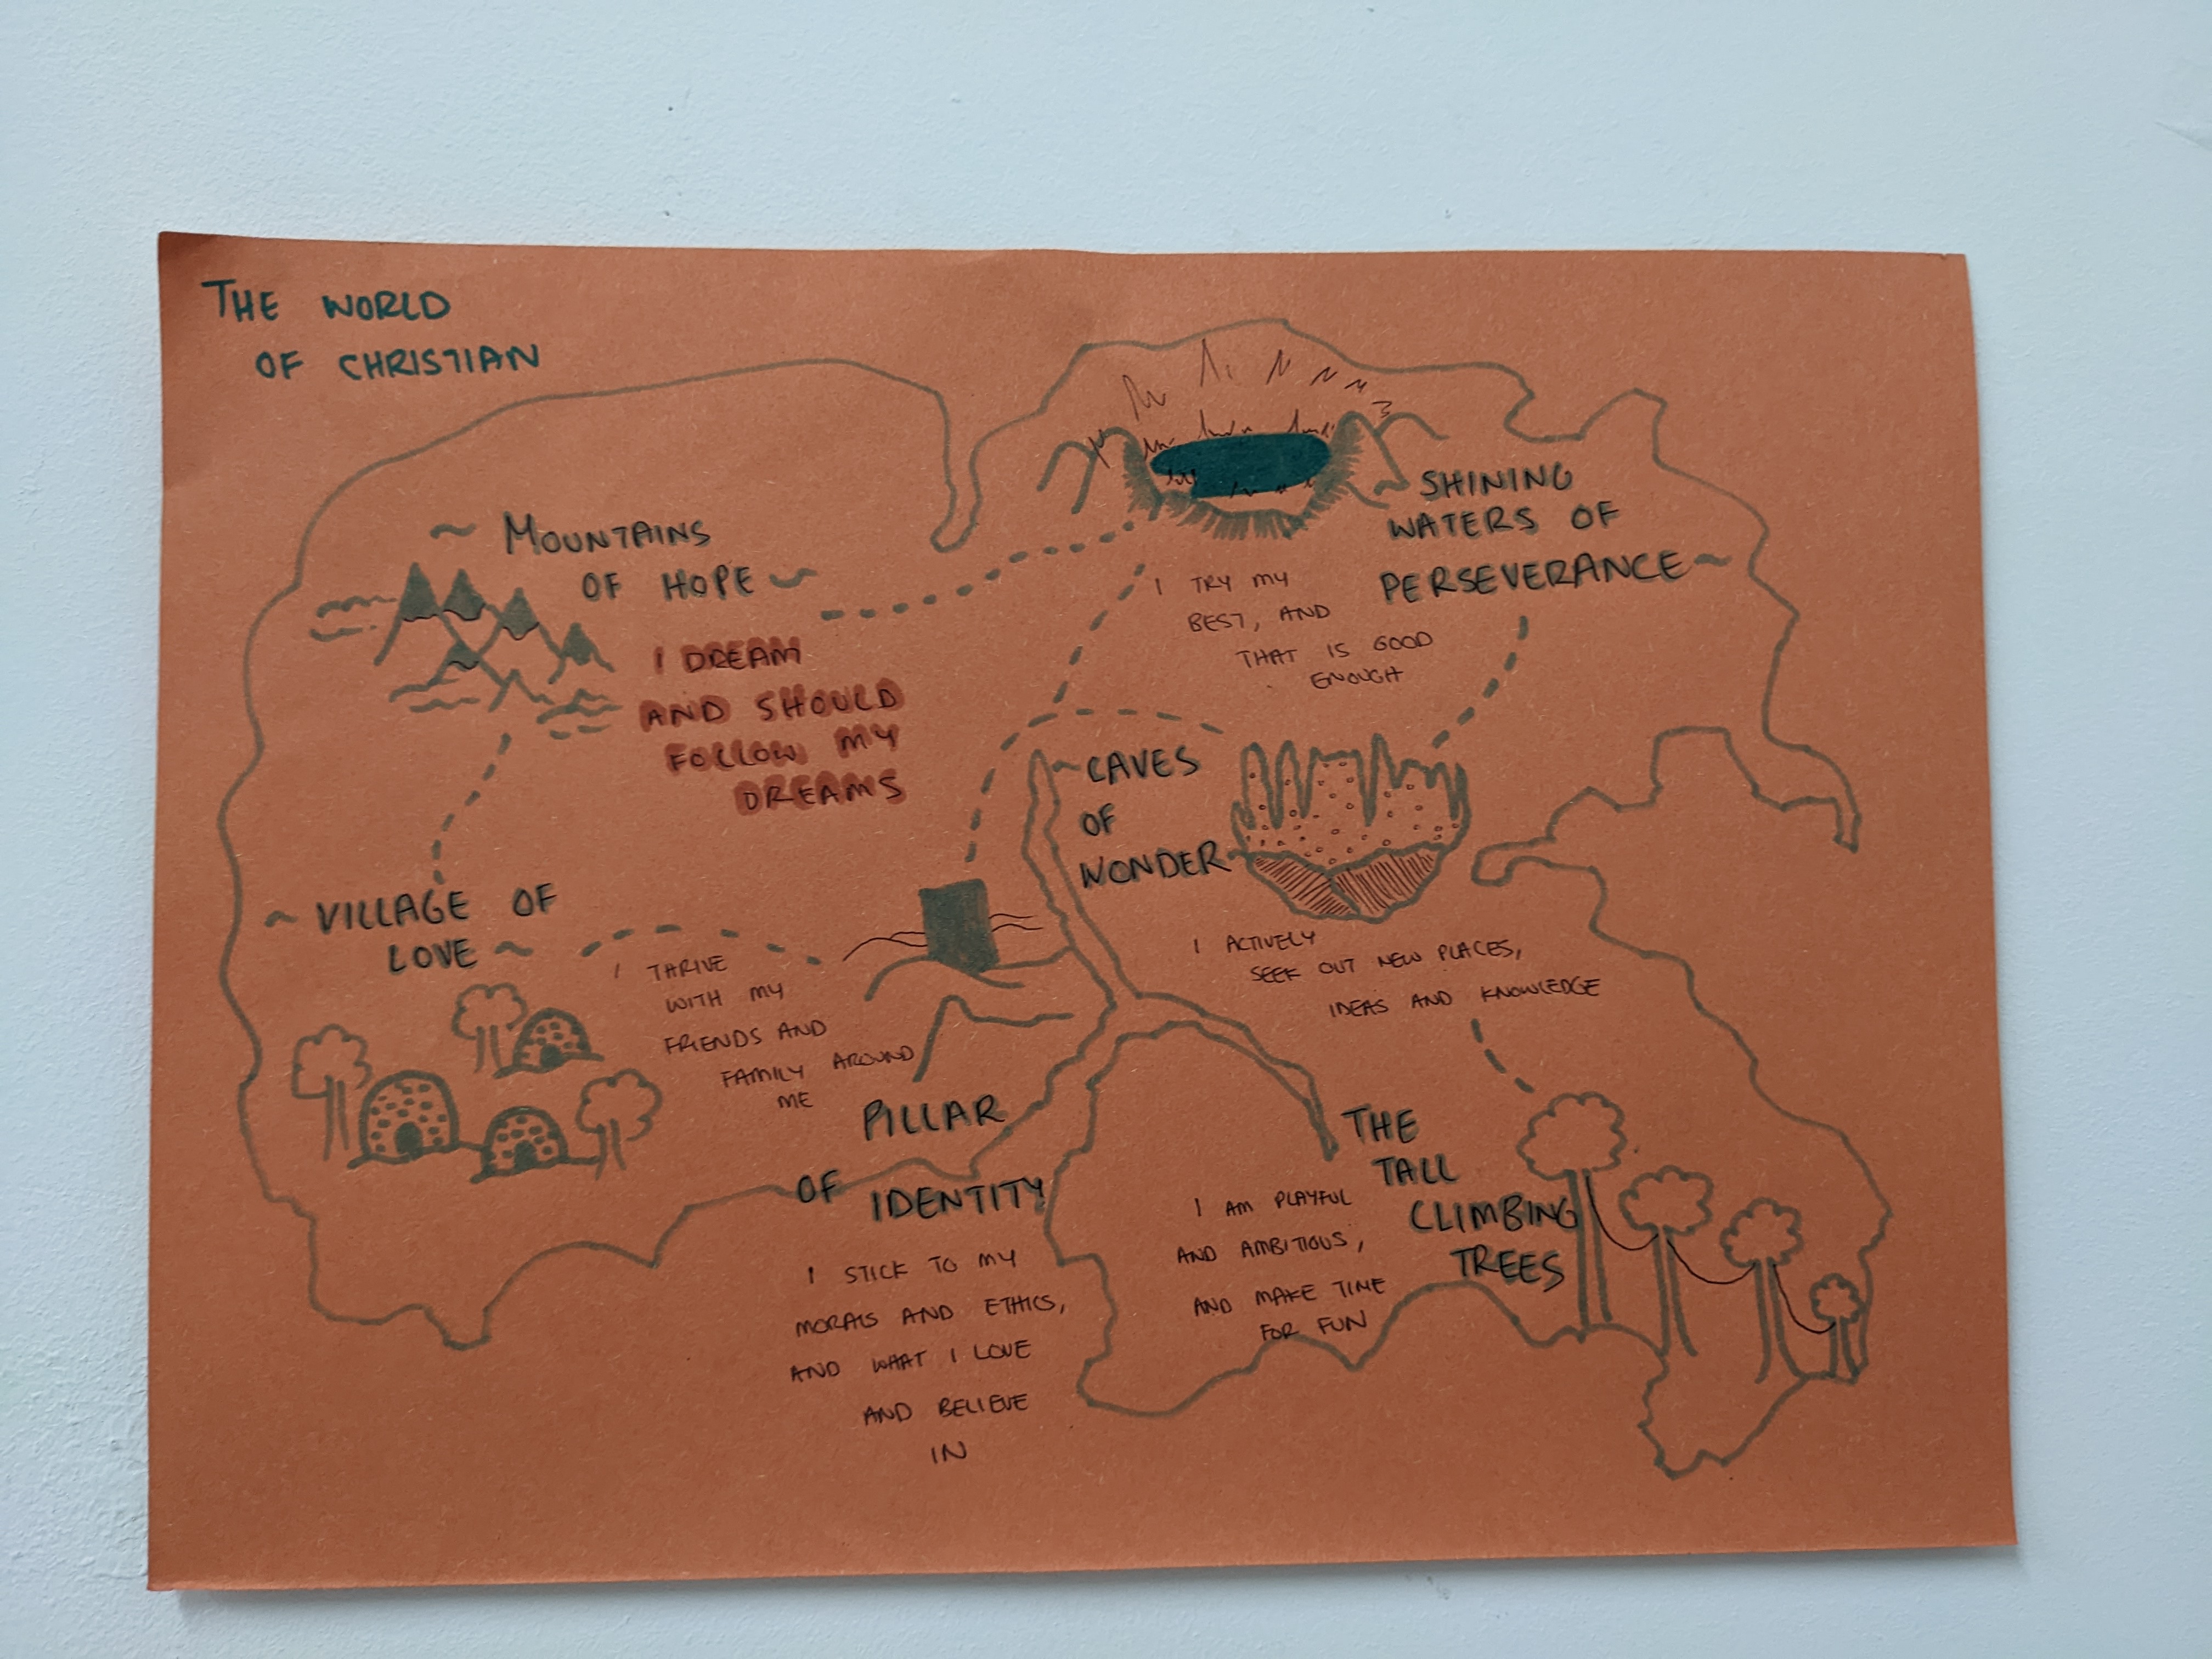 THE WORLD
OF CHRISTIAN
~ MOUNTAINS
OF HOPE ~
I DREAM
AND SHOULD
FOLLOW MY
DREAMS
~ SHINING
WATERS OF
PERSEVERANCE ~
I TRY MY
BEST, AND
THAT IS GOOD
ENOUGH
~ CAVES
OF
WONDER ~
I ACTIVELY
SEEK OUT NEW PLACES,
IDEAS AND KNOWLEDGE
~ VILLAGE OF
LOVE ~
I THRIVE
WITH MY
FRIENDS AND
FAMILY AROUND
ME
PILLAR
OF IDENTITY
I STICK TO MY
MORALS AND ETHICS,
AND WHAT I LOVE
AND BELIEVE
IN
THE
TALL
CLIMBING
TREES
I AM PLAYFUL
AND AMBITIOUS,
AND MAKE TIME
FOR FUN